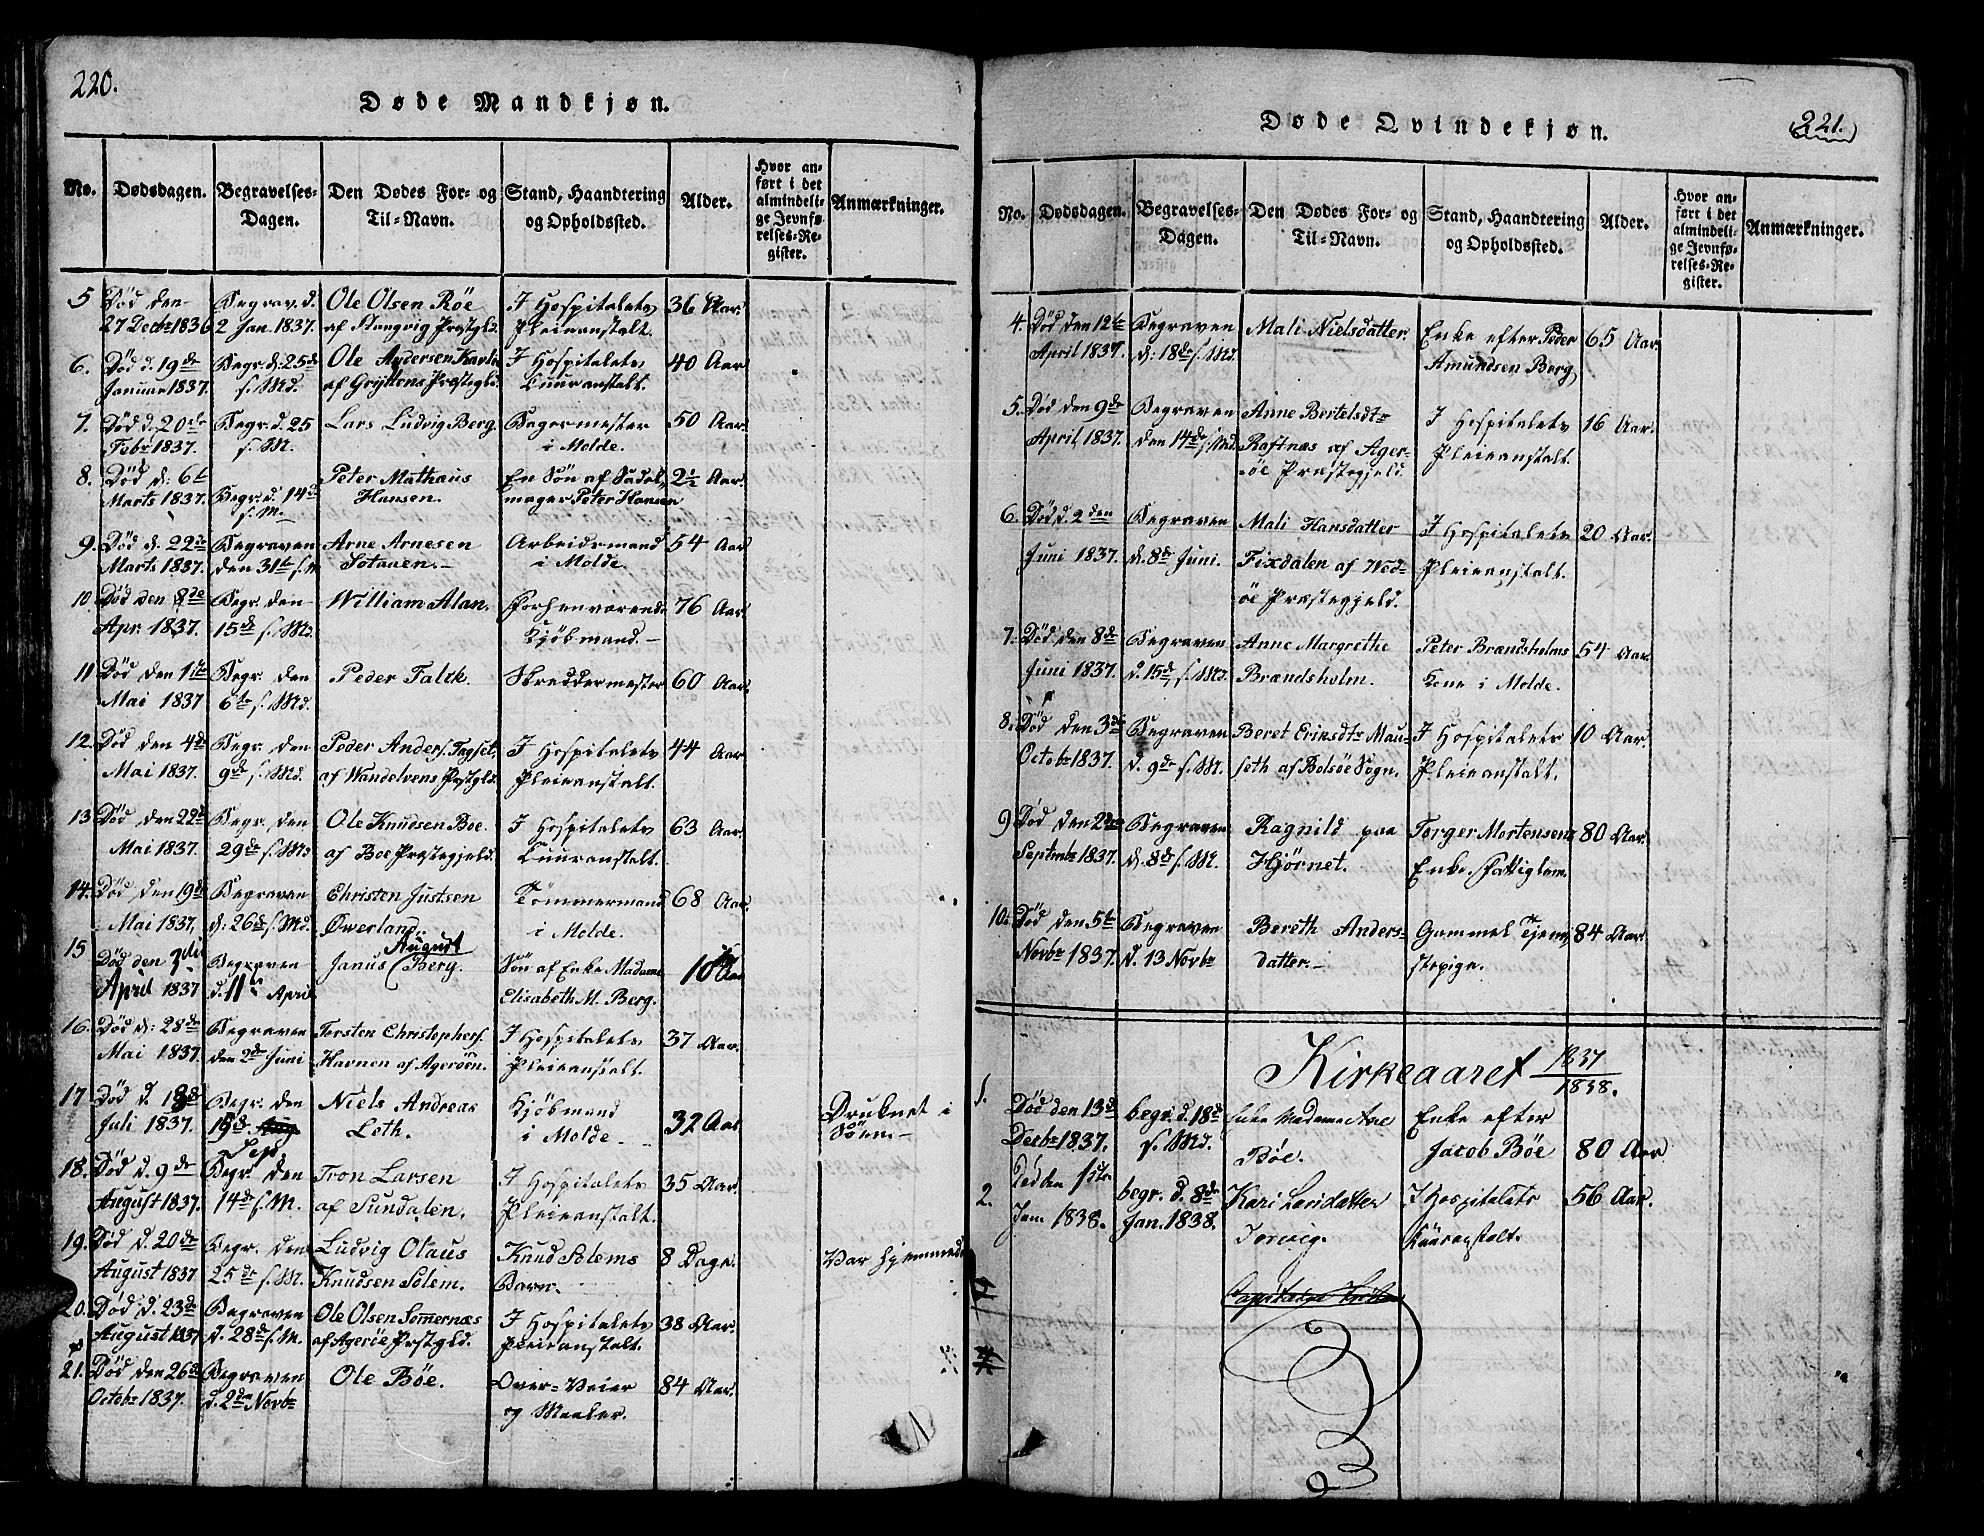 220.
Døde Mandkjøn.
No. Dødsdagen. Begravelses-Dagen. Den Dødes For- og Til-Navn. Stand, Haandtering og Opholdssted. Alder. Hvor anført i det almindelige Jevnførelses-Register. Anmærkninger.
5 Død den 27 Decbr 1836 Begrav. d. 2 Jan. 1837. Ole Olsen Röe af Stangvig Præstgld. I Hospitalets Pleieanstalt. 36 Aar.
6. Død d. 19de Januar 1837. Begr. d. 25de s. Md. Ole Andersen Kavli af Gryttens Præstegld. I Hospitalets Cuuranstalt. 40 Aar
7. Død d. 20de Febr 1837. Begr. d. 25 s. M. Lars Ludvig Berg. Bagermester i Molde. 50 Aar.
8. Död d. 6te Marts 1837. Begr. d. 14de s. M. Peter Mathæus Hansen. En Sön af Sadelmager Peter Hansen 2½ Aar.
9. Død d. 22de Marts 1837. Begraven den 31te s. M Arne Arnesen Sotauen. Arbeidsmand i Molde. 54 Aar
10. Død den 8de Apr. 1837. Begr. den 15de s. Md. William Alan. Forhenværende Kjöbmand. 76 Aar.
11 Död den 1ste Mai 1837 Begr. den 6te s. Md. Peder Falck. Skreddermester 60 Aar.
12. Död den 4de Mai 1837. Begr. den 9de s. Md. Peder Anders. Tagset, af Wandelvens Præstgld. I Hospitalets Pleieanstalt. 44 Aar
13 Död den 22de Mai 1837. Begr. den 29de s. Md Ole Knudsen Boe. af Boe Præstegjeld. I Hospitalets Cuuranstalt. 63 Aar.
14. Död den 19de Mai 1837, Begraven d. 26de s. Md. Christen Justsen Överland. Tömmermand i Molde. 68 Aar.
15 Död den April 1837 Begraven d. 11te April Janus August Berg. Sön af Enke Madame Elisabeth M. Berg. 10 Aar
16. Död d. 28de Mai 1837. Begraven den 2de Juni Torsten Christophers. Havnen af Agerøen. I Hospitalets Pleieanstalt. 37 Aar.
17 Död d. 18de Juli 1837. Begr. den 19de Sept Niels Andreas Leth. Kjöbmand i Molde. 32 Aar Druknet i Söen
18. Död d. 9de August 1837. Begr. den 14de s. M. Tron Larsen af Sundalen. I Hospitalets Pleieanstalt. 35 Aar.
19. Död d. 20de August 1837 Begr. den 25de s. M. Ludvig Olaus Knudsen Solem. Knud Solems Barn. 8 Dage. Var hjemmed.
20. Död d. 23de August 1837 Begraven d. 28de s. M. Ole Olsen Sommernæs af Ageröe Præstgld. I Hospitalets Pleieanstalt. 38 Aar.
21. Död den 26de Octobr 1837. Begraven d. 2den Novbr Ole Böe. Over-Veier og Maaler. 84 Aar.
221.
Døde Qvindekjøn.
No. Dødsdagen. Begravelses-Dagen. Den Dødes For- og Til-Navn. Stand, Haandtering og Opholdssted. Alder. Hvor anført i det almindelige Jevnførelses-Register. Anmærkninger.
4. Död den 12te April 1837. Begraven d. 18de s. Md. Mali Nielsdatter. Enke efter Peder Amundsen Berg 65 Aar.
5. Död den 9de April 1837. Begraven den 14de s. Md. Anne Bertelsdtr Raftnæs af Ageröe Præstegjeld. I Hospitalets Pleieanstalt. 16 Aar.
6. Död d. 2den Juni 1837. Begraven d. 8de Juni. Mali Hansdatter Fixdalen af Wedöe Præstegjeld. I Hospitalets Pleieanstalt. 20 Aar.
7. Död den 8de Juni 1837. Begraven d. 15de s. Md. Anne Margrethe Brændsholm. Peter Brændsholms Kone i Molde. 54 Aar.
8. Död den 3de Octobr 1837. Begraven d. 9de s. M. Beret Eriksdtr Mauseth af Bolsöe Sogn. I Hospitalets Pleieanstalt. 10 Aar.
9 Död den 2den Septmbr 1837. Begraven d. 8de s. M. Ragnild paa Hjörnet. Torger Mortensens Enke. Fattiglem. 80 Aar.
10. Död den 5te Novbr 1837. Begraven d. 13 Novbr Bereth Andersdatter. Gammel Tjenestepige. 84 Aar.
Kirkeaaret 1837/1838.
1. Död den 13de Decbr 1837. begr. d. 18de s. Md. Enke Madame Ane Böe. Enke efter Jacob Böe 80 Aar
2. Död den 1ste Jan. 1838. begr. d. 8de Jan. 1838. Kari Larsdatter Torvig. I Hospitalets Kuuranstalt. 56 Aar.